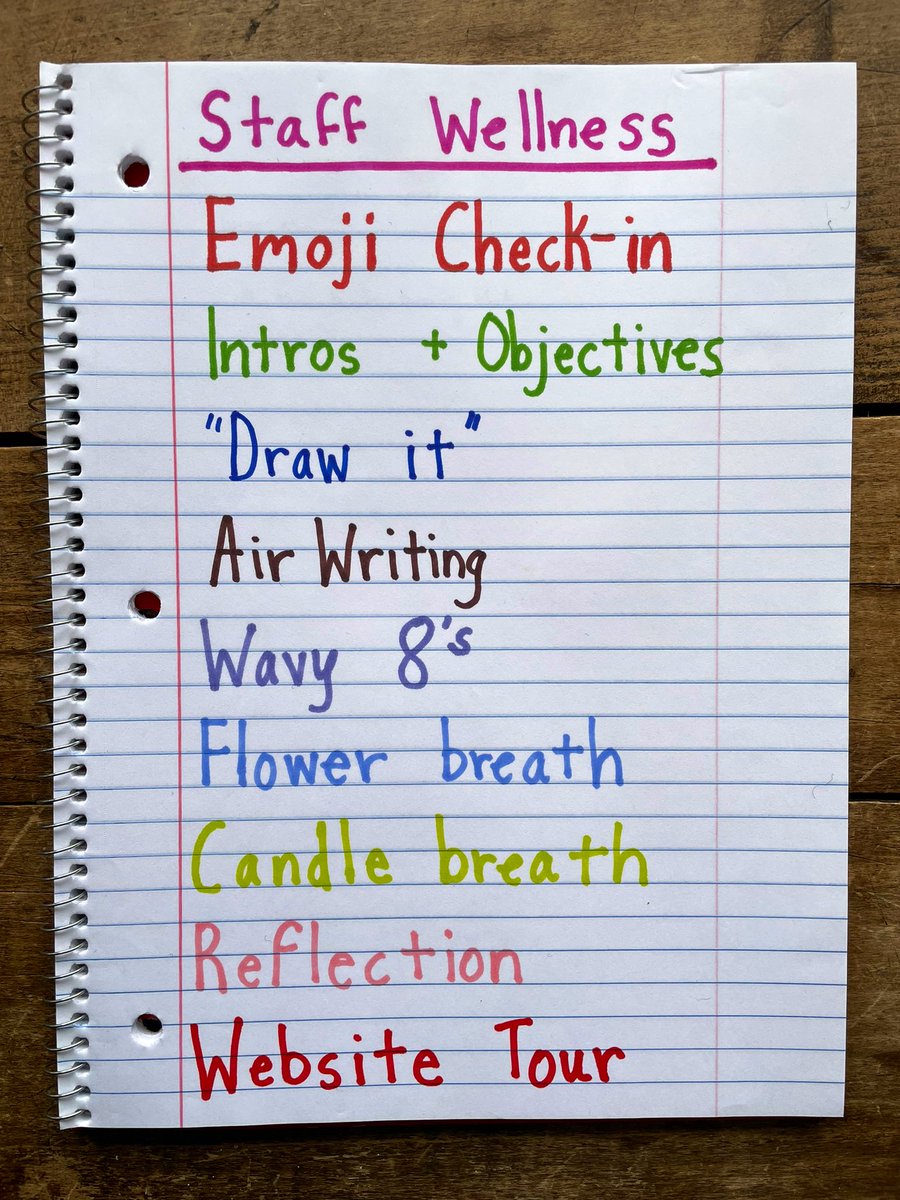 Staff Wellness
Emoji Check-in
Intros + Objectives
"Draw it"
Air Writing
Wavy 8's
Flower breath
Candle breath
Reflection
Website Tour